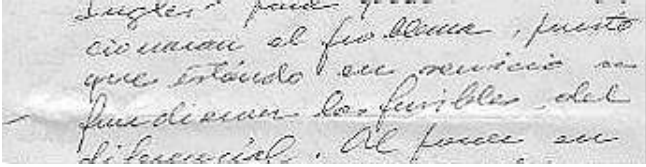 Ingles para
cionaran el problema, puesto
que estando en servicio se
fundieran los fusibles del
diferencial. Al poner en